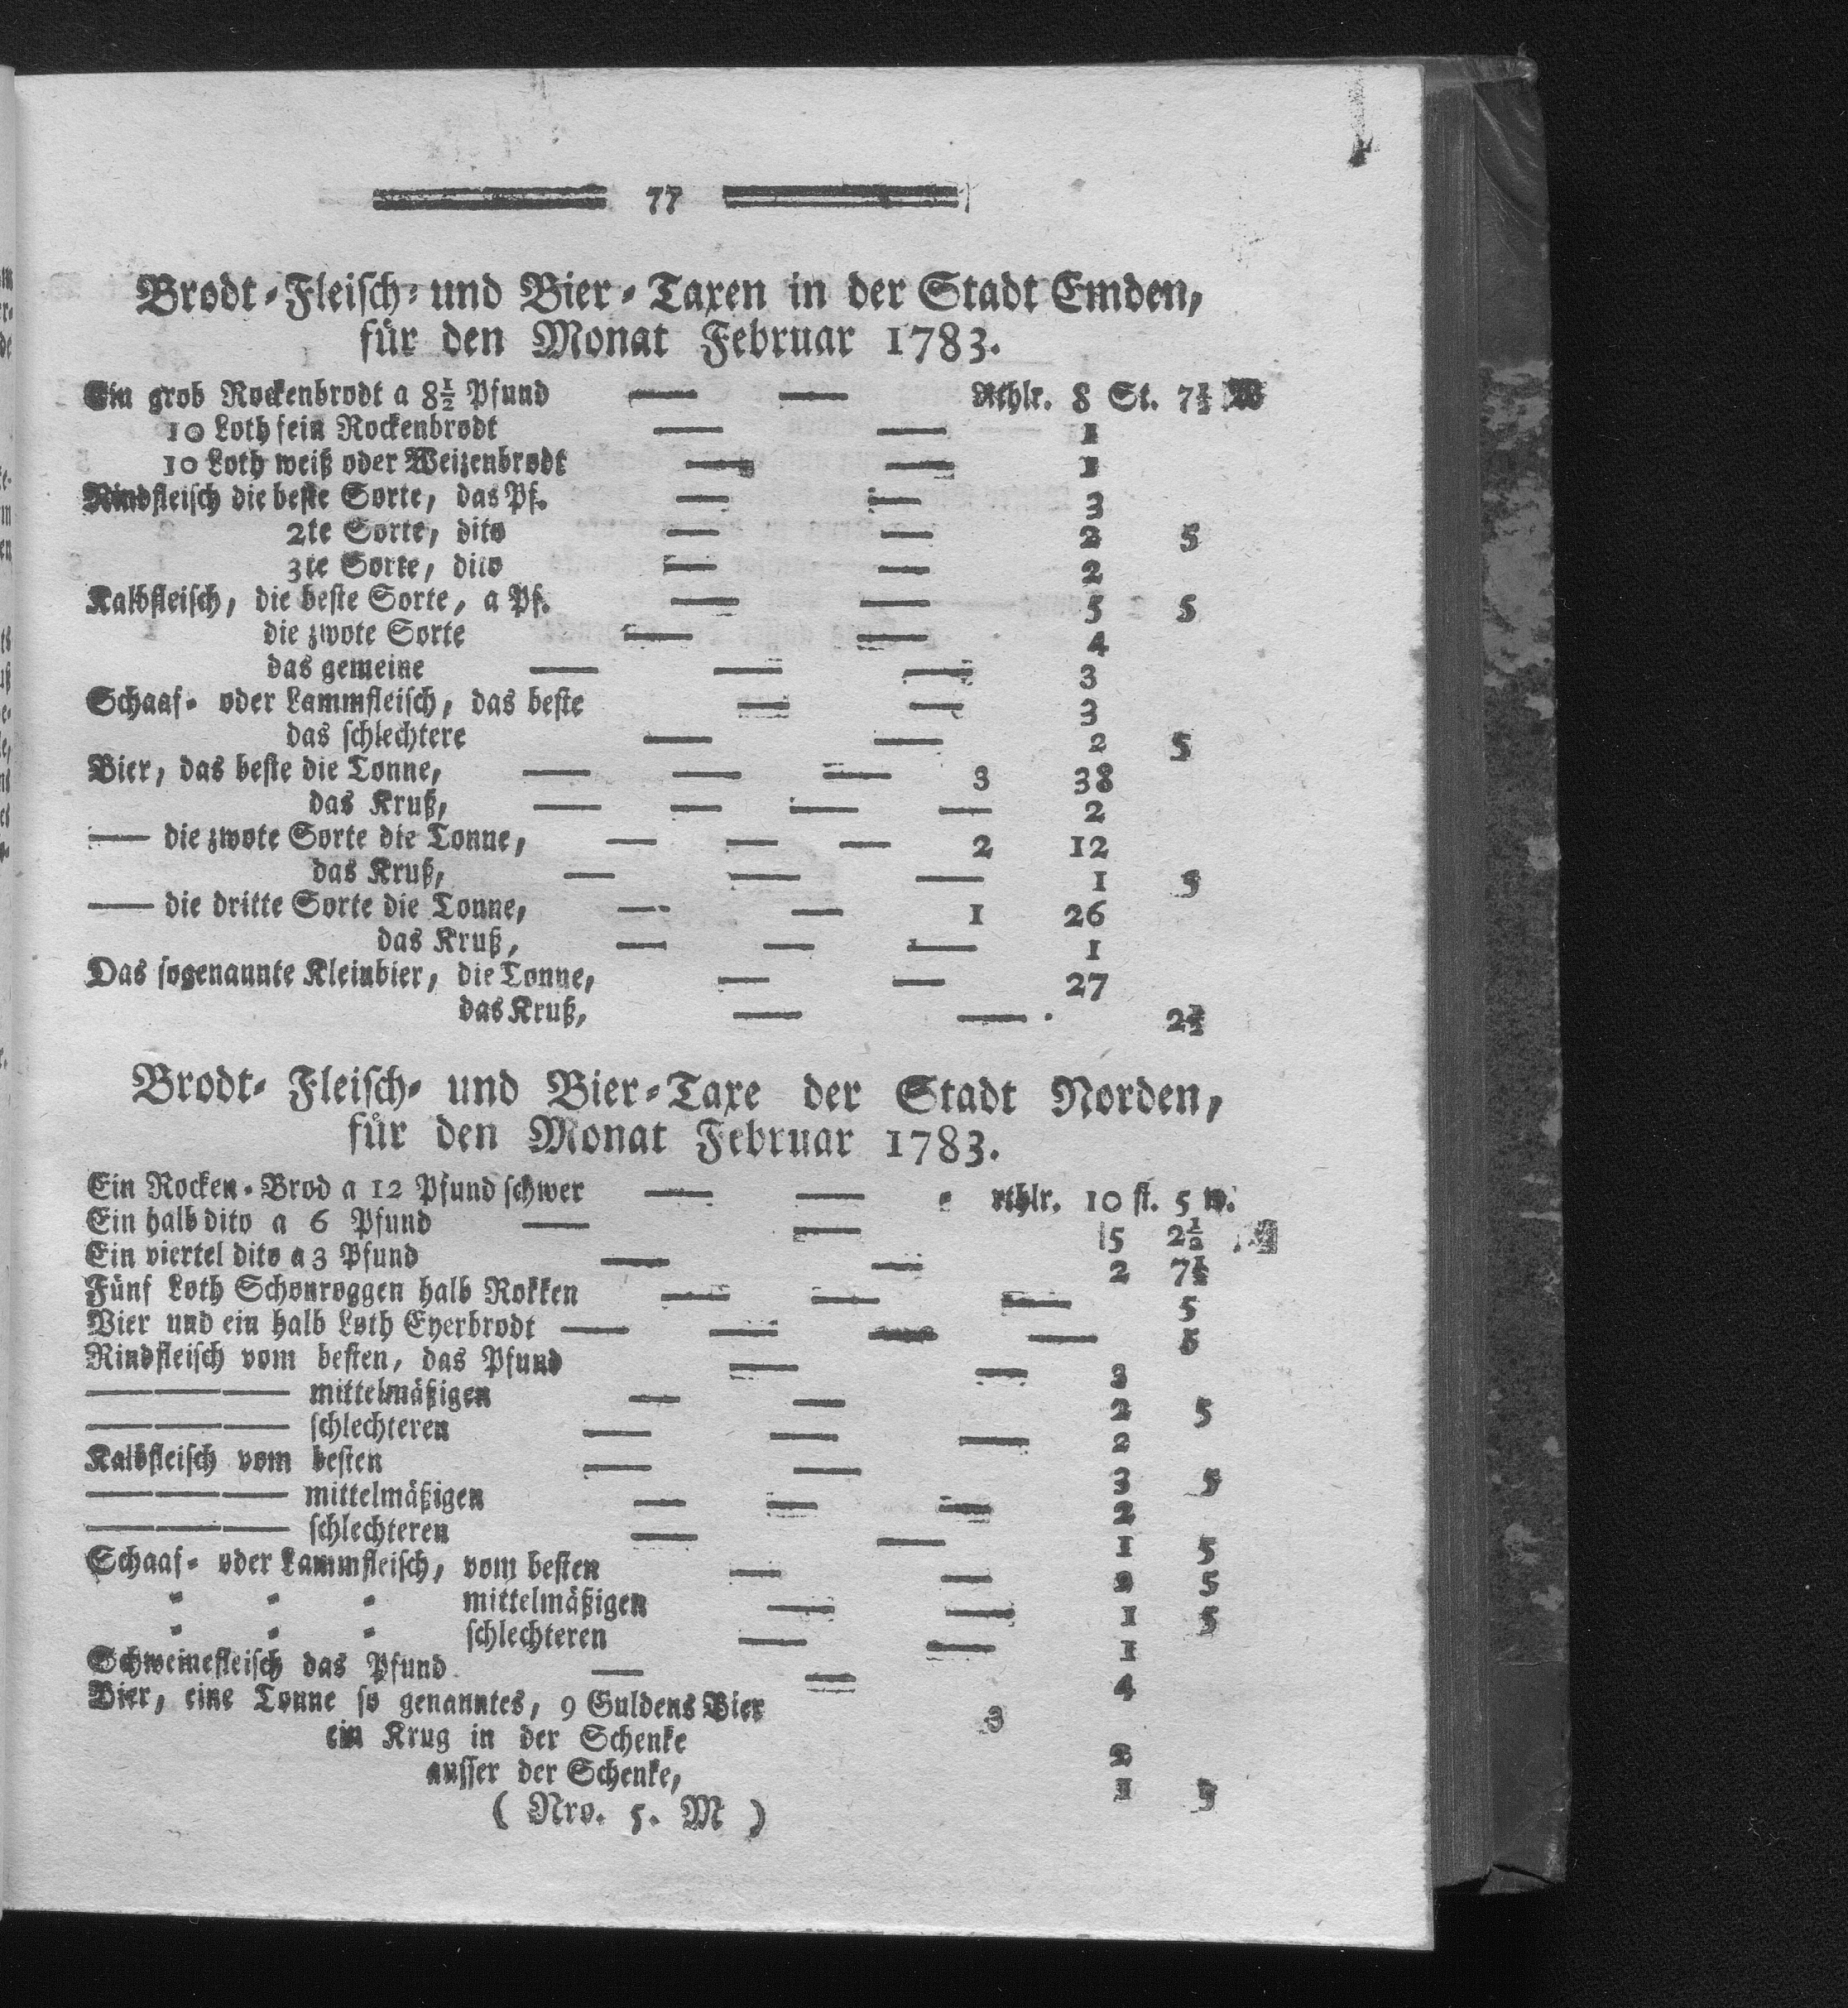 77
Brodt-Fleisch- und Bier-Taxen in der Stadt Emden,
für den Monat Februar 1783.
Ein grob Rockenbrodt a 8½ Pfund — — Rthlr. 8 St. 7½ W
10 Loth fein Rockenbrodt — — 1
10 Loth weiß oder Weizenbrodt — — 1
Rindfleisch die beste Sorte, das Pf. — — 3
2te Sorte, dito — — 2 5
3te Sorte, dito — — 2
Kalbfleisch, die beste Sorte, a Pf. — — 5 5
die zwote Sorte — — 4
das gemeine — — — 3
Schaaf- oder Lammfleisch, das beste — — 3
das schlechtere — — 2 5
Bier, das beste die Tonne, — — — 3 38
das Kruß, — — — — 2
— die zwote Sorte die Tonne, — — — 2 12
das Kruß, — — — 1 5
— die dritte Sorte die Tonne, — — 1 26
das Kruß, — — — 1
Das sogenannte Kleinbier, die Tonne, — — 27
das Kruß, — — 2½
Brodt- Fleisch- und Bier-Taxe der Stadt Norden,
für den Monat Februar 1783.
Ein Rocken-Brod a 12 Pfund schwer — — rthlr. 10 st. 5 w.
Ein halb dito a 6 Pfund — — 5 2½
Ein viertel dito a 3 Pfund — — 2 7½
Fünf Loth Schonroggen halb Rokken — — — 5
Vier und ein halb Loth Eyerbrodt — — — — 5
Rindfleisch vom besten, das Pfund — — 3
——— mittelmäßigen — — 2 5
——— schlechteren — — — 2
Kalbfleisch vom besten — — 3 5
——— mittelmäßigen — — — 2
——— schlechteren — — 1 5
Schaaf- oder Lammfleisch, vom besten — — 2 5
- - - mittelmäßigen — — 1 5
- - - schlechteren — — 1
Schweinefleisch das Pfund — — 4
Bier, eine Tonne so genanntes, 9 Guldens Bier 3
ein Krug in der Schenke 2
ausser der Schenke, 1 5
( Nro. 5. M )